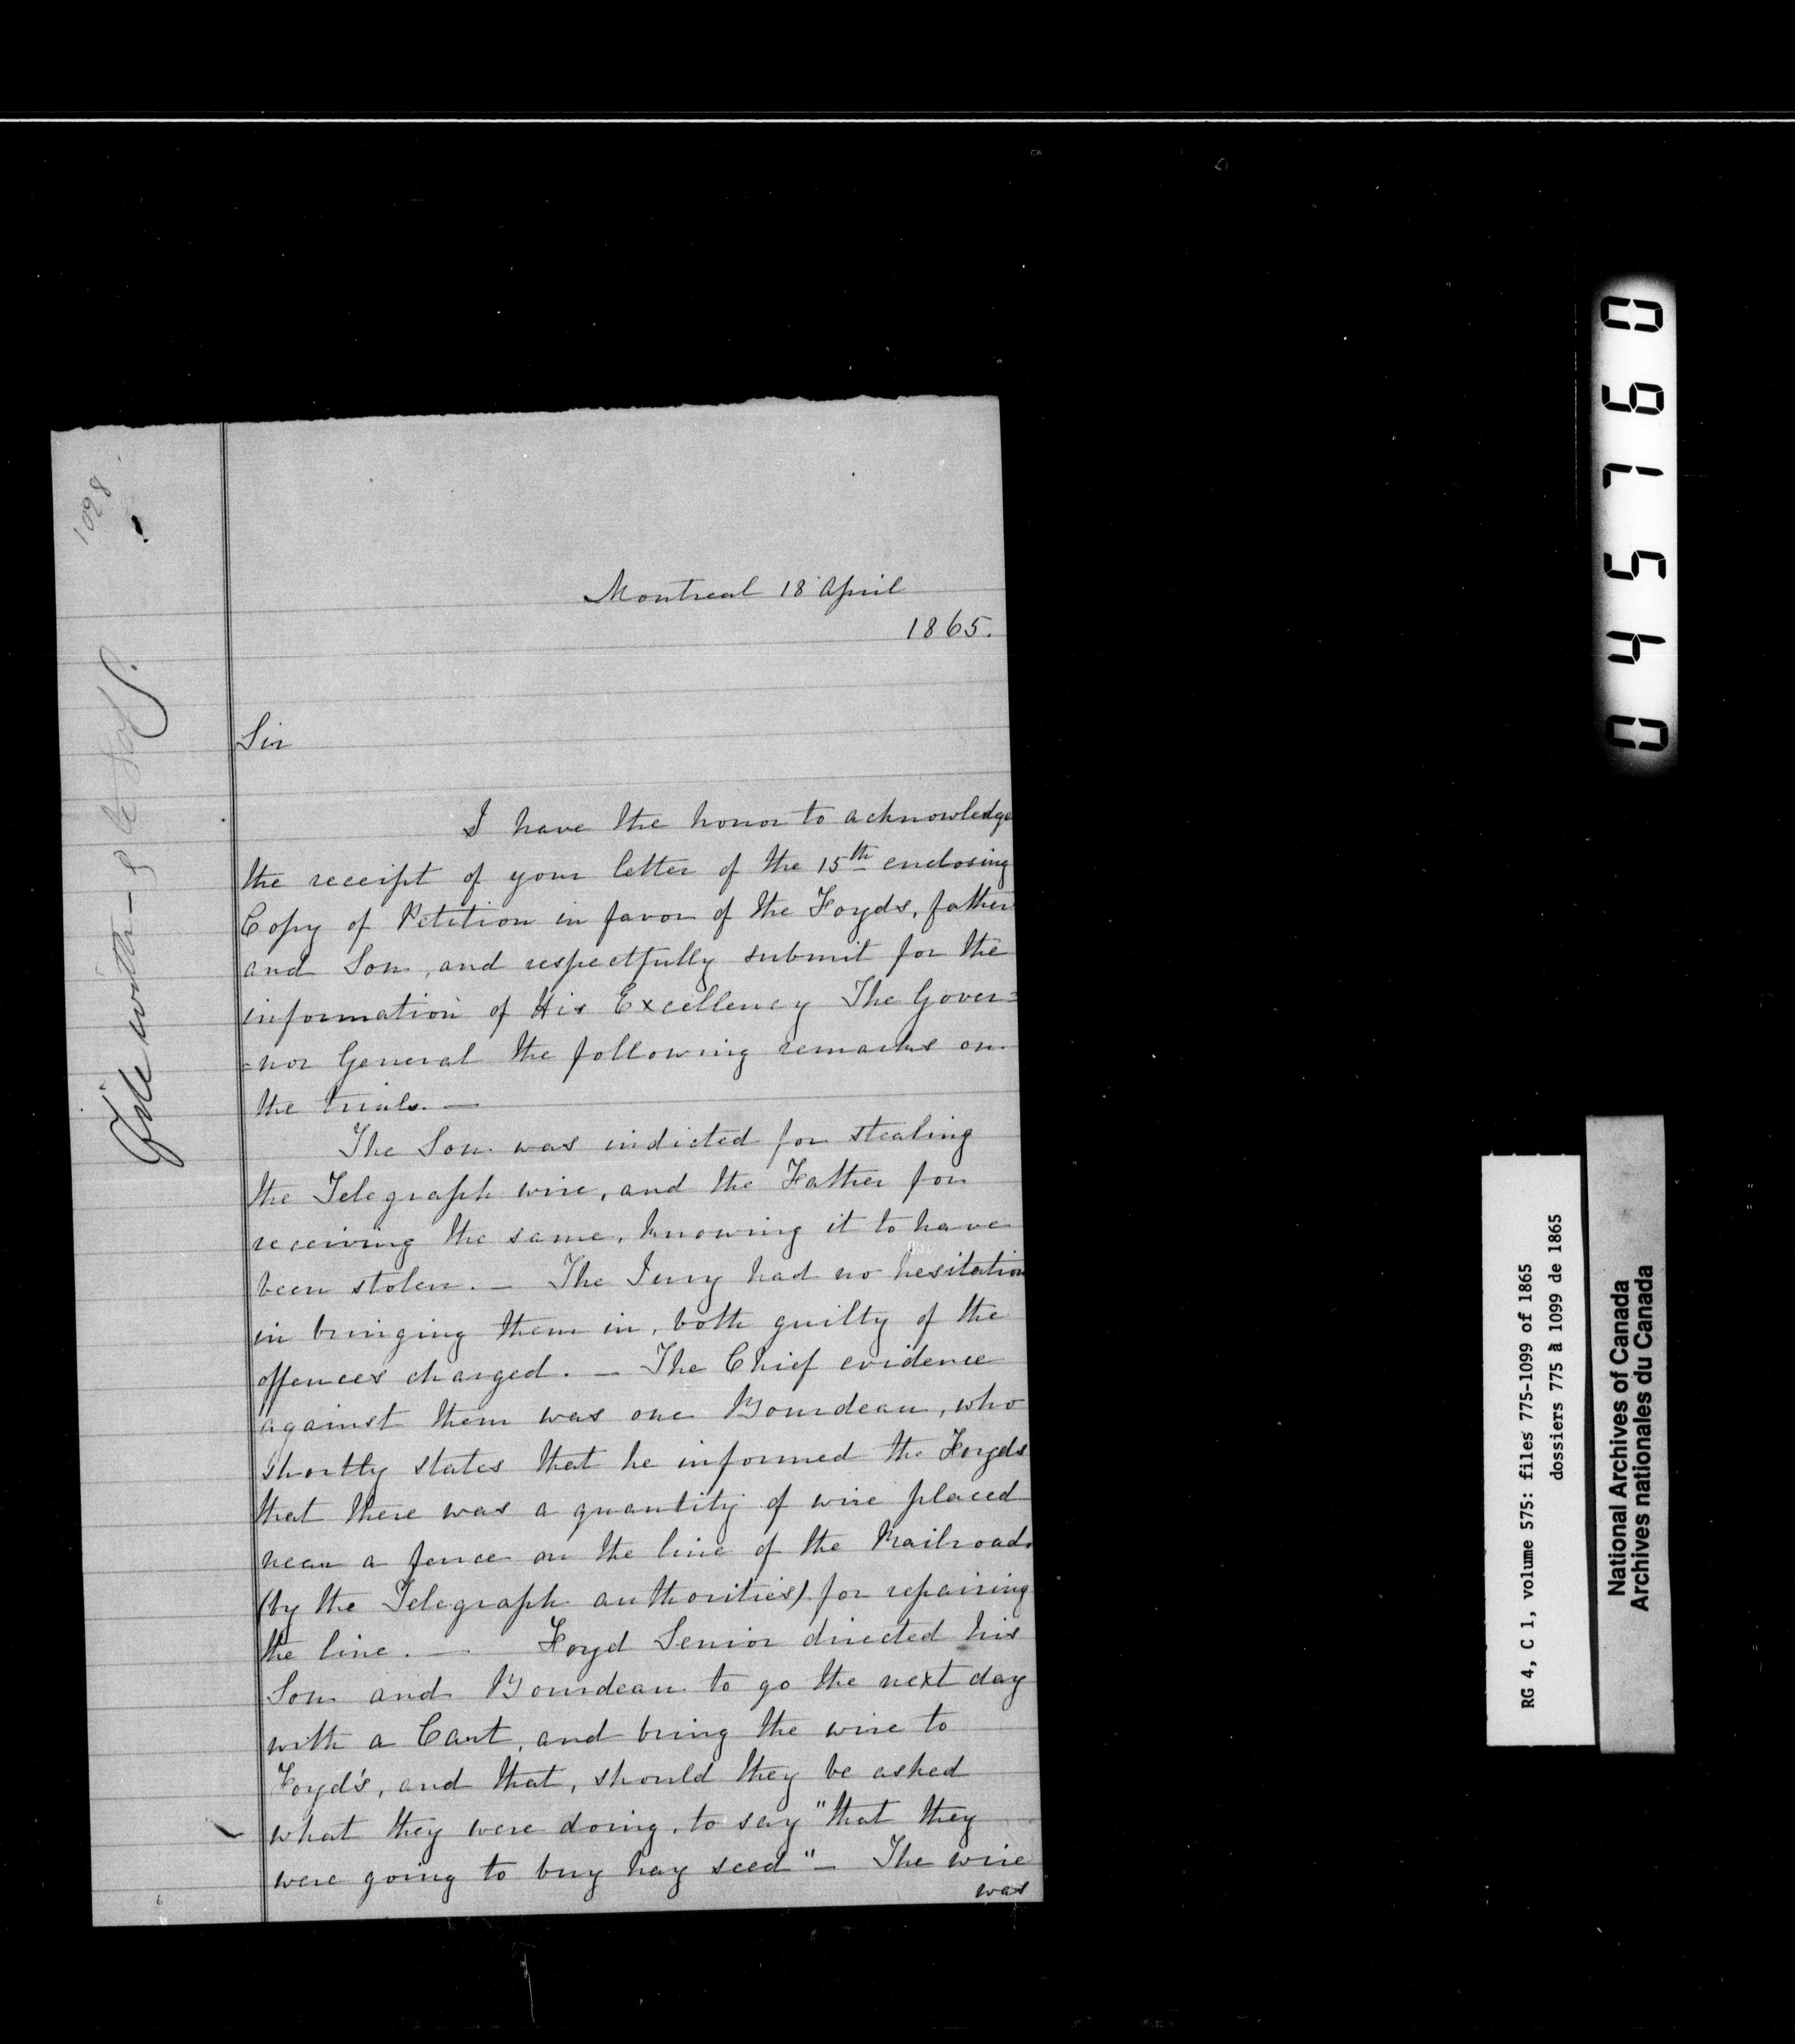 1098
File with
Montreal 18 April
1865.
Sir
I have the honor to acknowledge
the receipt of your letter of the 15th enclosing
Copy of Petition in favor of the Foyds, father
and Son, and respectfully submit for the
information of His Excellency The Gover=
=nor General the following remarks on
the trials. —
The Son was indicted for stealing
the Telegraph wire, and the Father for
receiving the same, knowing it to have
been stolen. — The Jury had no hesitation
in bringing them in, both guilty of the
offences charged. — The Chief evidence
against them was one Bourdeau, who
shortly states that he informed the Foyds
that there was a quantity of wire placed
near a fence on the line of the Railroad.
(by the Telegraph authorities) for repairing
the line. — Foyd Senior directed his
Son and Bourdeau to go the next day
with a Cart, and bring the wire to
Foyd's, and that, should they be asked
what they were doing, to say "that they
were going to buy hay seed" — The wire
was
045160
RG 4, C 1, volume 575: files 775-1099 of 1865
dossiers 775 à 1099 de 1865
National Archives of Canada
Archives nationales du Canada